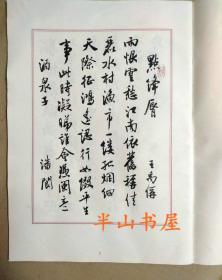 點絳唇
王禹偁
雨恨雲愁江南依舊稱佳
麗水村漁市一縷孤烟細
天際征鴻遥認行如綴平生
事此時凝睇誰會憑闌意
酒泉子
潘閬
半山书屋